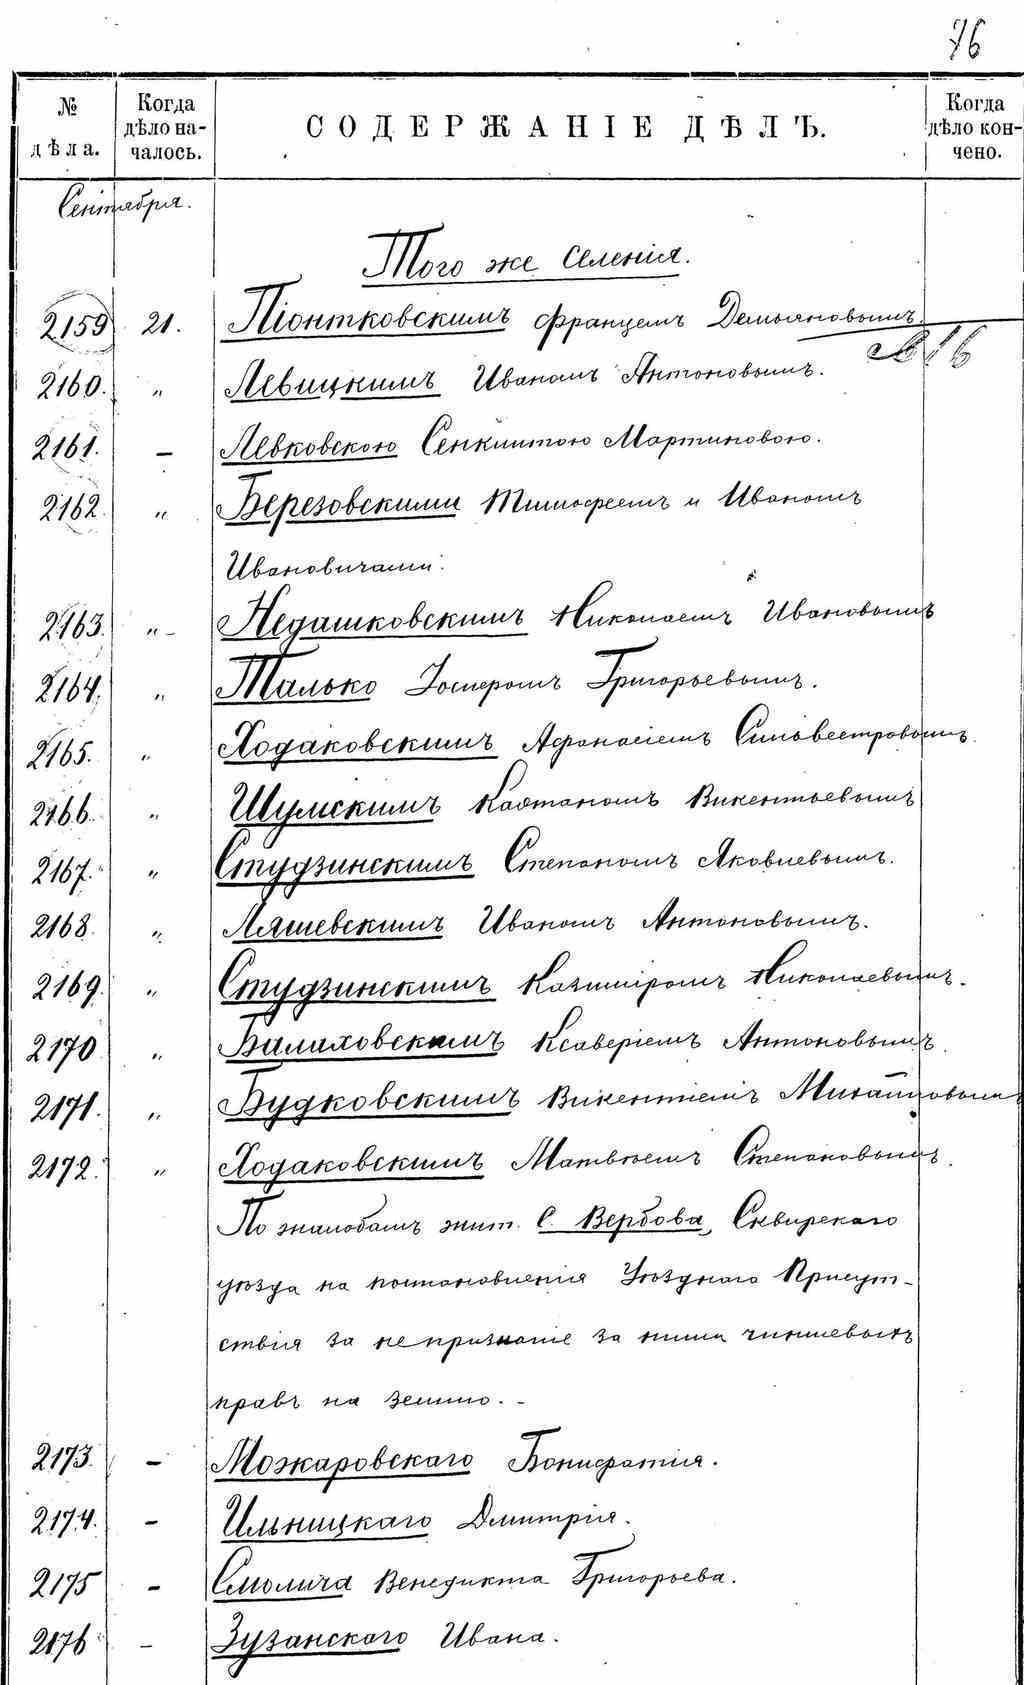 76
№ дѣла.
Когда дѣло началось.
СОДЕРЖАНІЕ ДѢЛЪ.
Когда дѣло кончено.
Сентября.
Того же Селенія.
2159 21. Піонтковскимъ Францемъ Демьяновымъ.
2160. „ Левицкимъ Иваномъ Антоновымъ. 16
2161. – Левковскою Мартиновою.
2162. „ Березовскими Тимофеемъ и Иваномъ
Ивановичами.
2163. „ – Недашковскимъ Николаемъ Ивановымъ
2164. „ Малько Іосифомъ Григорьевымъ.
2165. „ Ходаковскимъ Афанасіемъ Сильвестровымъ.
2166. „ Шумскимъ Каэтаномъ Викентьевымъ
2167. „ Студзинскимъ Степаномъ Яковлевымъ.
2168 „ Ляшевскимъ Иваномъ Антоновымъ.
2169. „ Студзинскимъ Казиміромъ Николаевымъ.
2170 „ Балаховскимъ Ксаверіемъ Антоновымъ.
2171. „ Будковскимъ Викентіемъ Михайловымъ
2172. „ Ходаковскимъ Матвѣемъ Степановымъ.
По жалобамъ жит. С. Вербова, Сквирскаго
уѣзда на постановленія Уѣзднаго Присут-
ствія за непризнаніе за ними чиншевыхъ
правъ на землю. –
2173. – Можаровскаго Бонифатія.
2174. – Ильницкаго Дмитрія.
2175 – Смолича Венедикта Григорьева.
2176 – Зузанскаго Ивана.